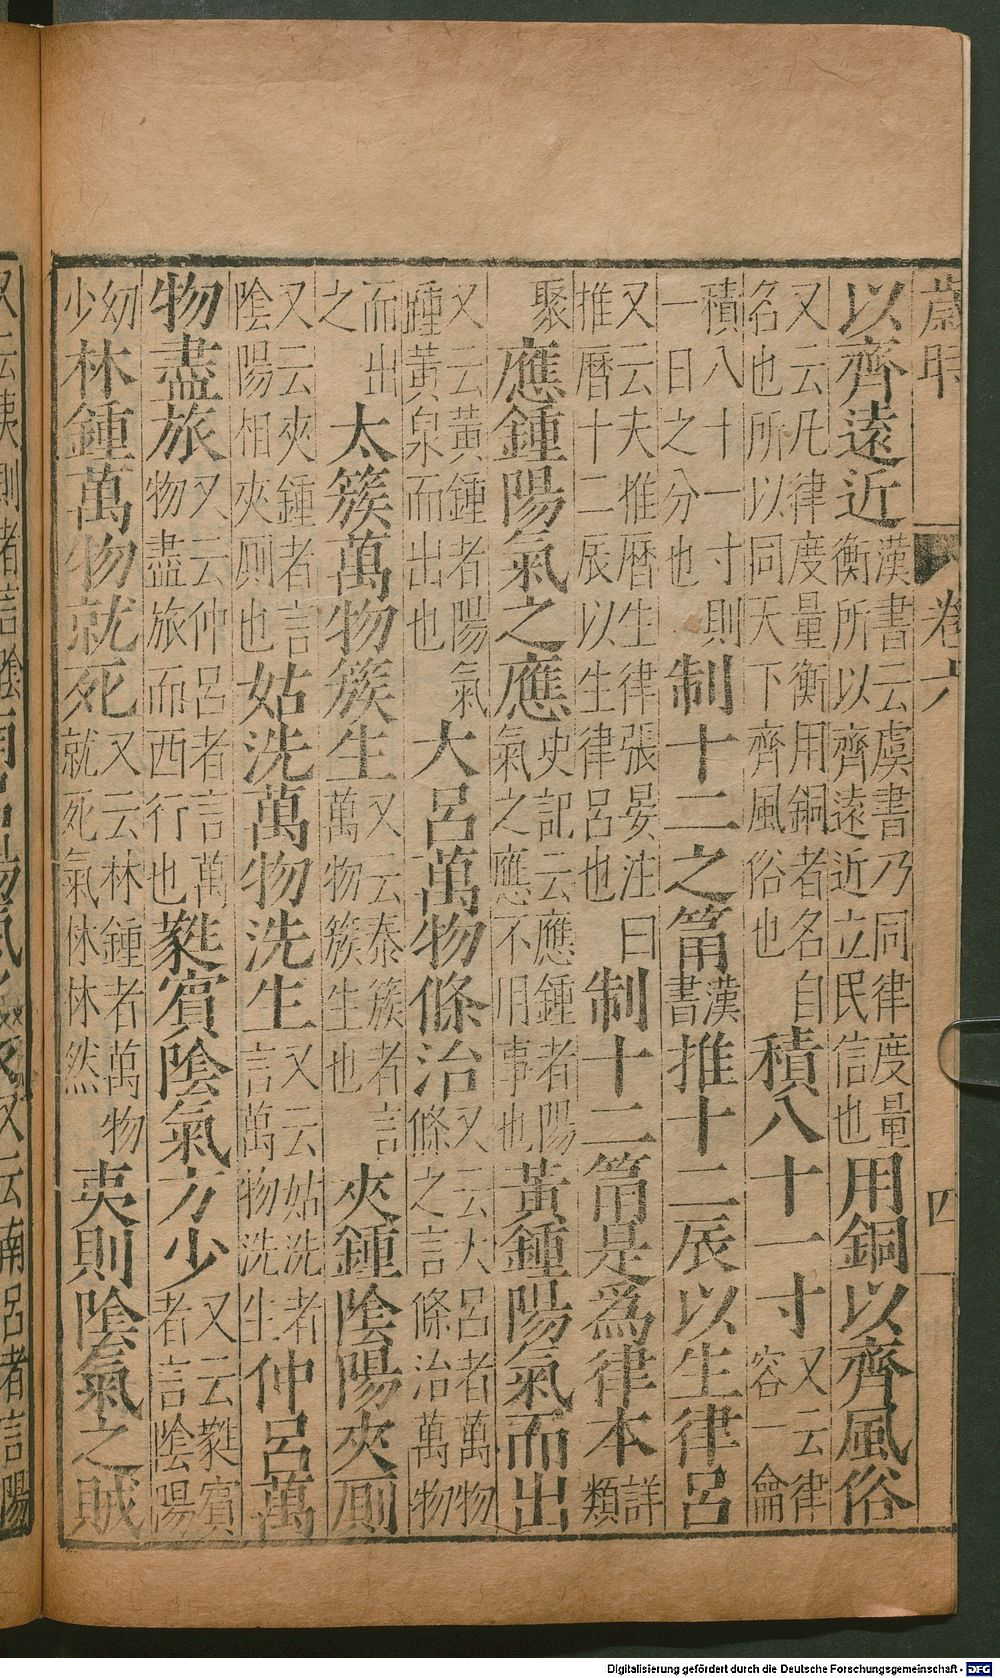 歲時 卷六 四
以齊遠近漢書云虞書乃同律度量衡所以齊遠近立民信也用銅以齊風俗
又云凡律度量衡用銅者名自名也所以同天下齊風俗也積八十一寸又云律容一龠
積八十一寸則一日之分也制十二之筩漢書推十二辰以生律呂
又云夫推曆生律張晏注曰推曆十二辰以生律呂也制十二筩是爲律本詳類
聚應鍾陽氣之應史記云應鍾者陽氣之應不用事也黃鍾陽氣而出
又云黃鍾者陽氣踵黃泉而出也大呂萬物條治又云大呂者萬物條之言條治萬物
而出之太簇萬物簇生又云泰簇者言萬物簇生也夾鍾陰陽夾厠
又云夾鍾者言陰陽相夾厠也姑洗萬物洗生又云姑洗者言萬物洗生仲呂萬
物盡旅又云仲呂者言萬物盡旅而西行也蕤賓陰氣方少又云蕤賓者言陰陽
幼少林鍾萬物就死又云林鍾者萬物就死氣休休然夷則陰氣之賊
又云夷則者言陰 又云南呂者言陽
Digitalisierung gefördert durch die Deutsche Forschungsgemeinschaft - DFG